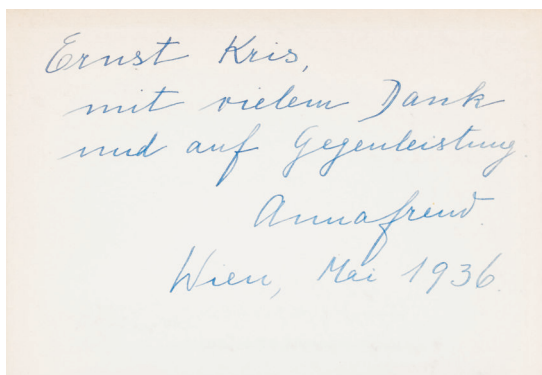 Ernst Kris,
mit vielem Dank
und auf Gegenleistung
Annafreud.
Wien, Mai 1936.